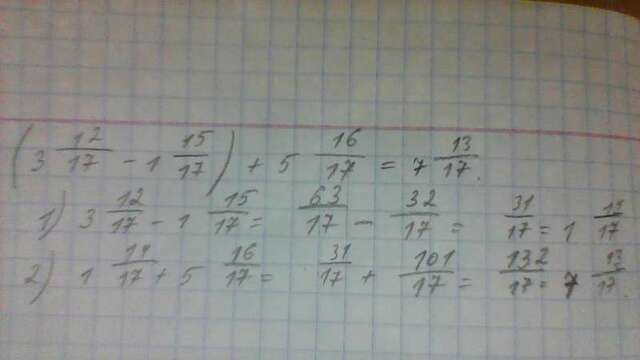 (3 12/17 - 1 15/17) + 5 16/17 = 7 13/17.
1) 3 12/17 - 1 15/17 = 63/17 - 32/17 = 31/17 = 1 14/17
2) 1 14/17 + 5 16/17 = 31/17 + 101/17 = 132/17 = 7 13/17